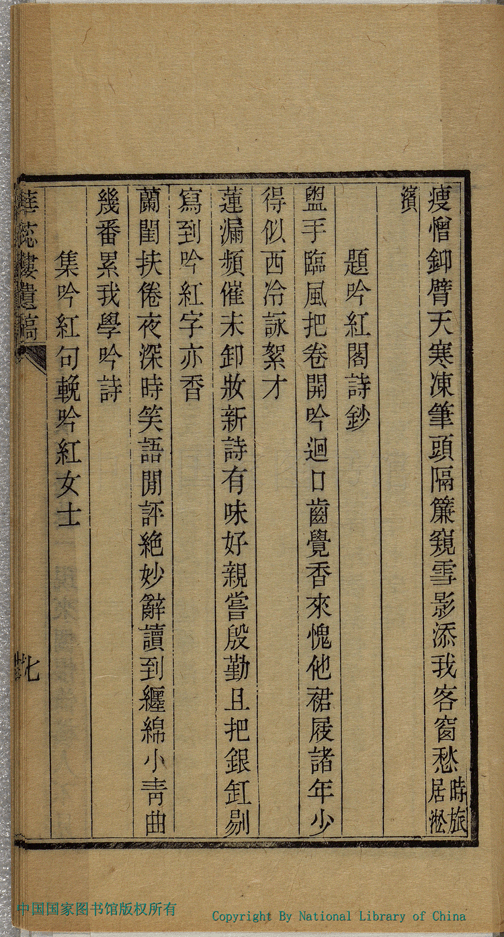 瘦憎釧臂天寒凍筆頭隔簾窺雪影添我客窗愁時旅居淞
濱
題吟紅閣詩鈔
盥手臨風把卷開吟迴口齒覺香來愧他裙屐諸年少
得似西泠詠絮才
蓮漏頻催未卸妝新詩有味好親嘗殷勤且把銀缸剔
寫到吟紅字亦香
蘭閨扶倦夜深時笑語閒評絕妙辭讀到纏綿小青曲
幾番累我學吟詩
集吟紅句輓吟紅女士
華蕊樓遺稿
七
中国国家图书馆版权所有
Copyright By National Library of China